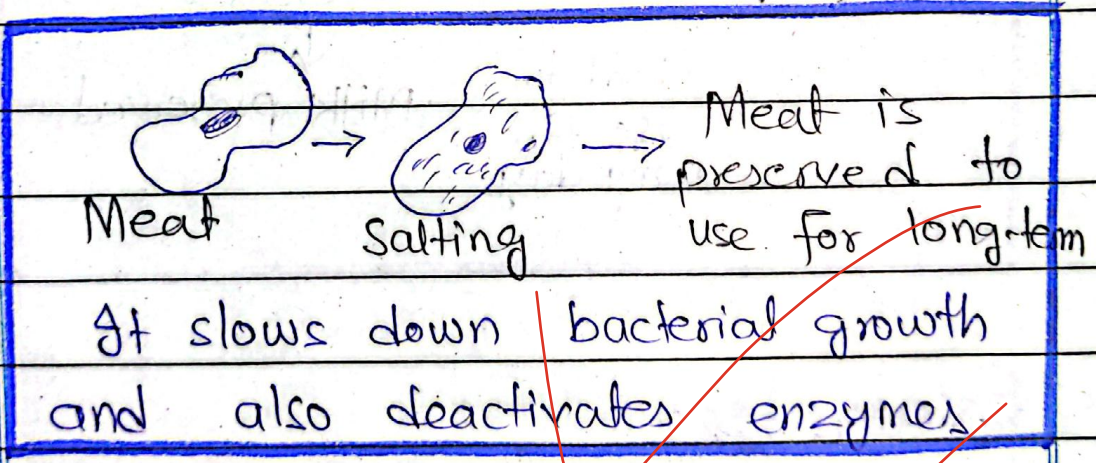 Meat
Salting
Meat is
preserved to
use for long-tem
It slows down bacterial growth
and also deactivates enzymes.